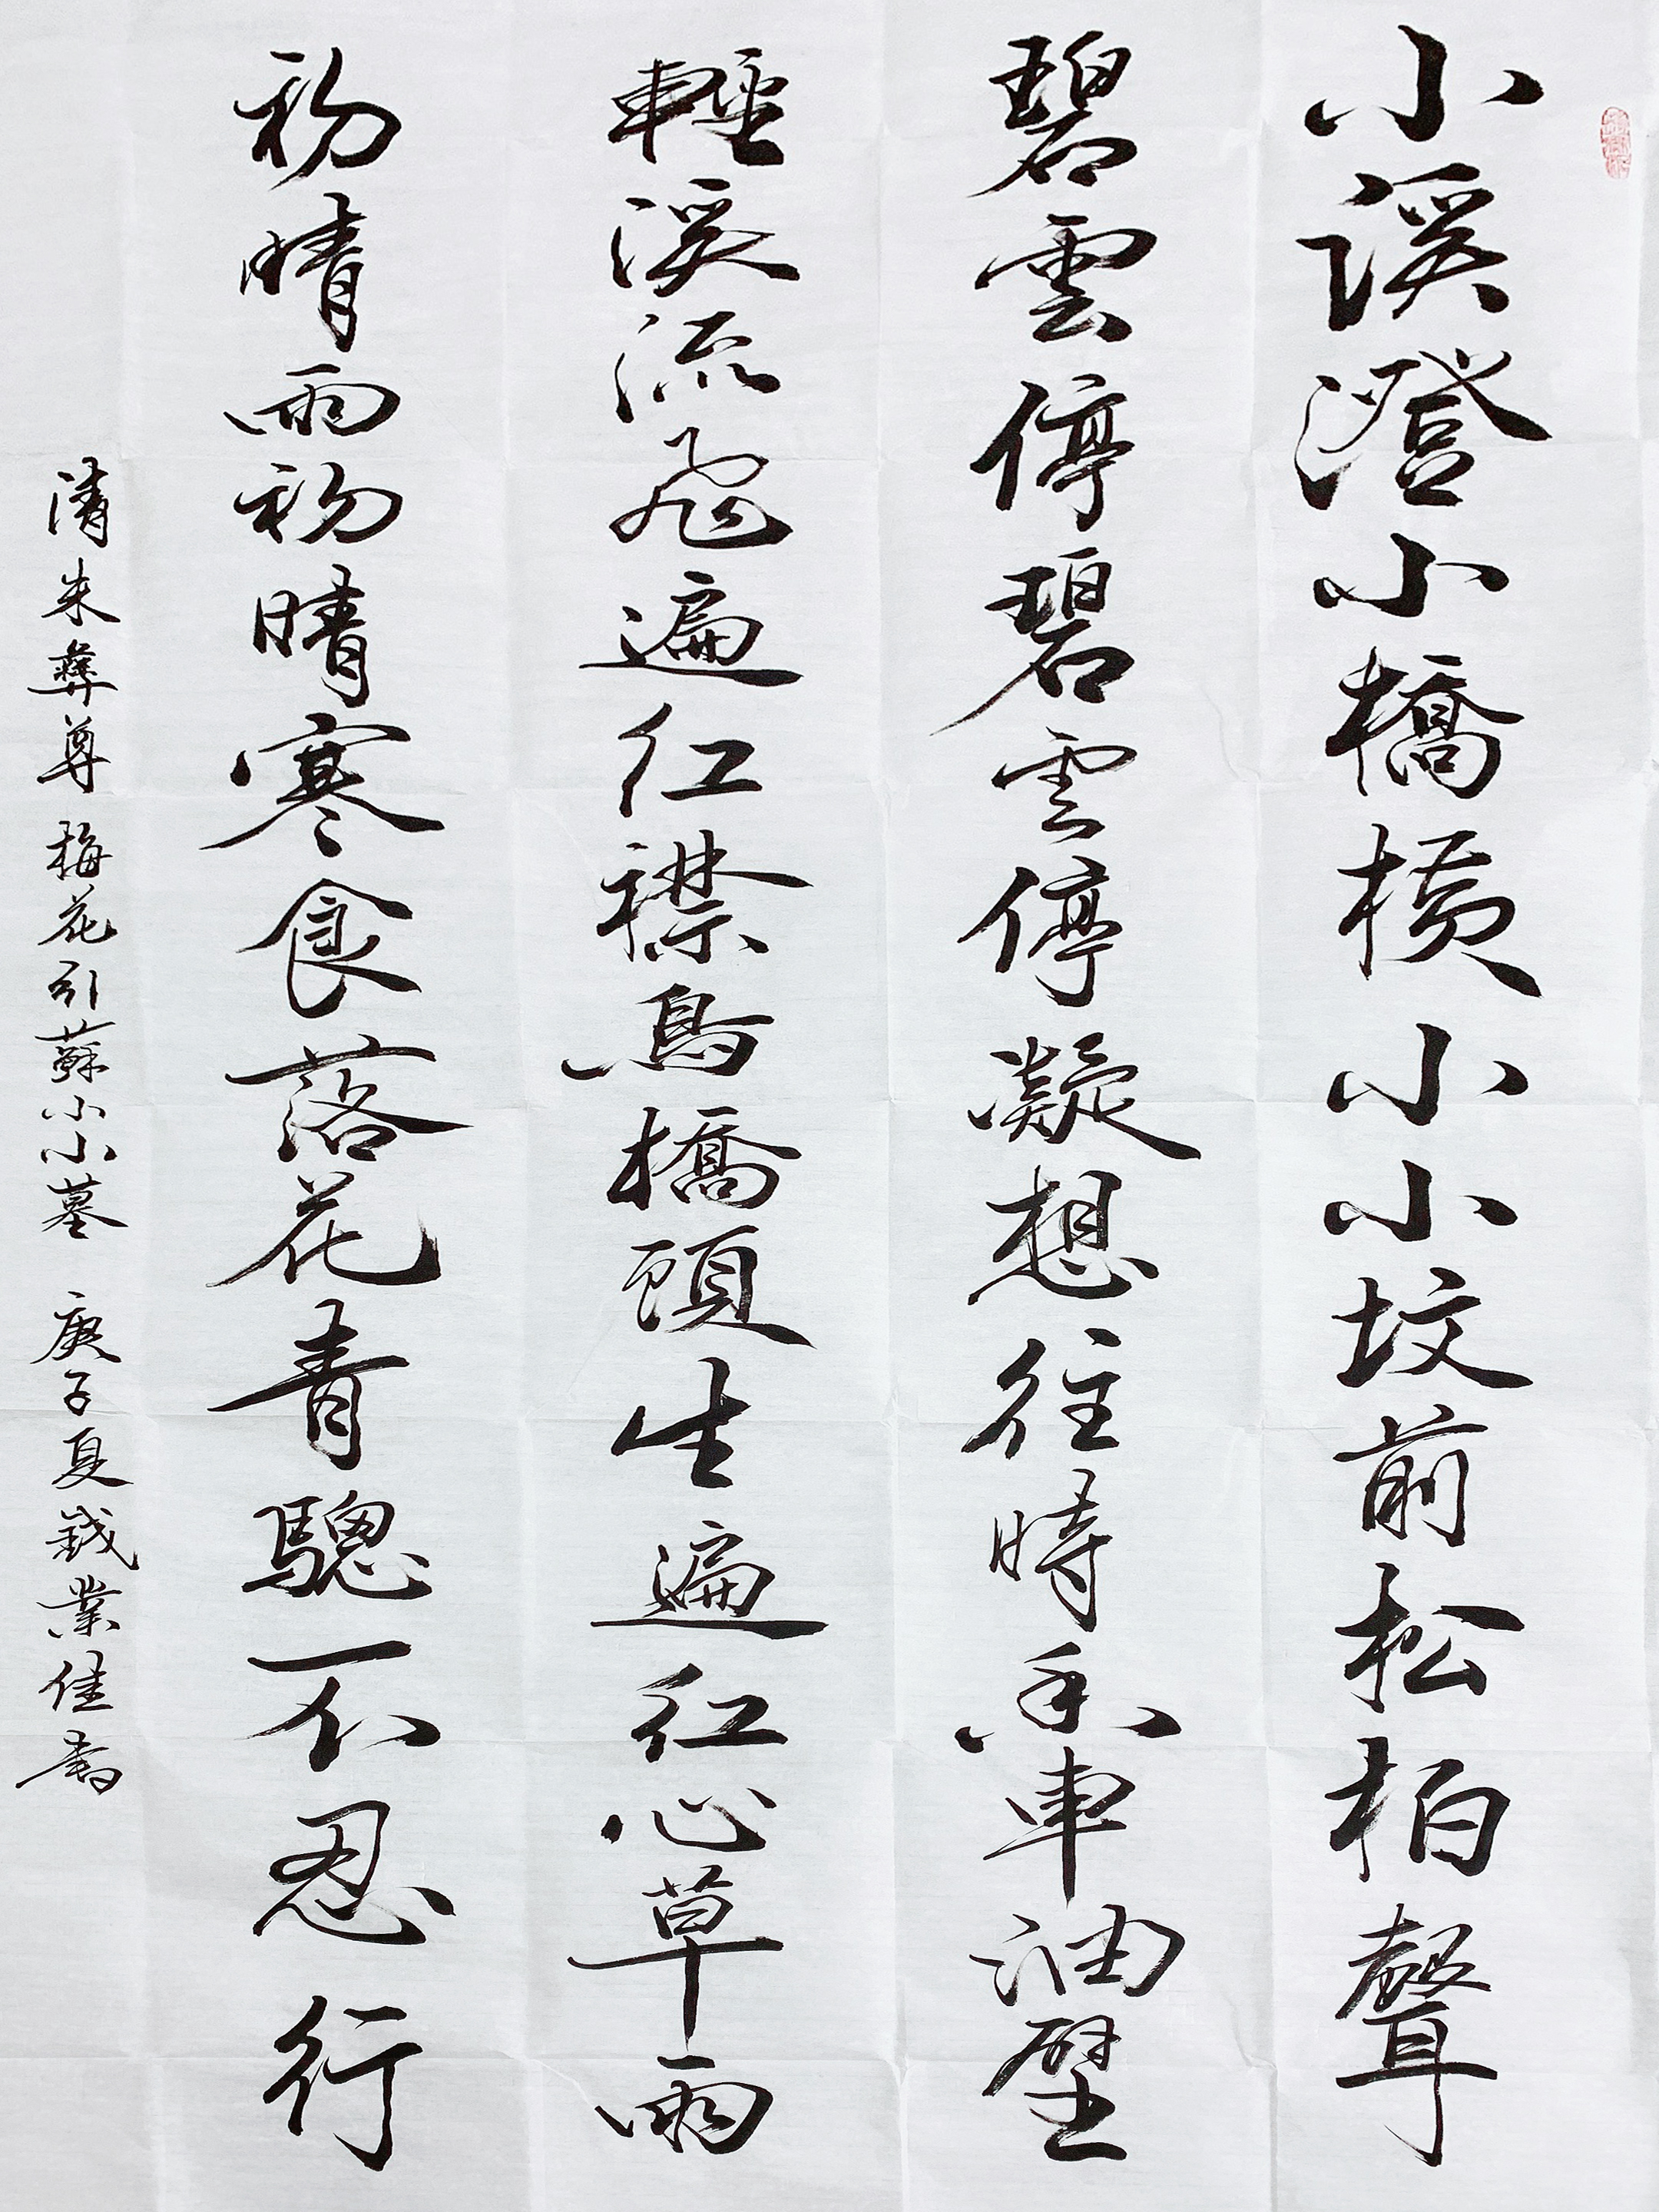 小溪澄小橋橫小小坟前松柏聲
碧雲停碧雲停凝想往時香車油壁
輕溪流飛遍红襟鳥橋頭生遍红心草雨
初晴雨初晴寒食落花青驄不忍行
清朱彝尊 梅花引蘇小小墓 庚子夏業佳書